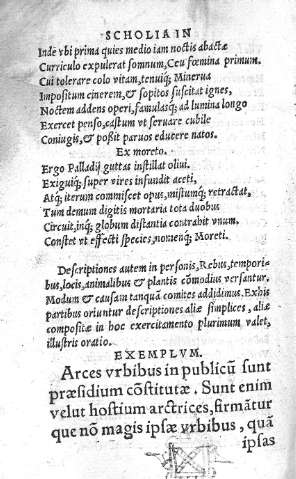 SCHOLIA IN
Inde vbi prima quies medio iam noctis abactæ
Curriculo expulerat somnum, Ceu fœmina primum.
Cui tolerare colo vitam, tenuiq; Minerua
Impositum cinerem, & sopitos suscitat ignes,
Noctem addens operi, famulasq; ad lumina longo
Exercet penso, castum vt seruare cubile
Coniugis, & poßit paruos educere natos.
Ex moreto.
Ergo Palladij guttas instillat oliui.
Exiguiq; super vires infundit aceti,
Atq; iterum commiscet opus, mistumq; retractat,
Tum demum digitis mortaria tota duobus
Circuit, inq; globum distantia contrahit vnum.
Constet vt effecti species, nomenq; Moreti.
Descriptiones autem in personis, Rebus, tempori-
bus, locis, animalibus & plantis cōmodius versantur.
Modum & causam tanquā comites addidimus. Ex his
partibus oriuntur descriptiones aliæ simplices, aliæ
compositæ in hoc exercitamento plurimum valet,
illustris oratio.
EXEMPLVM.
Arces vrbibus in publicū sunt
præsidium cōstitutæ. Sunt enim
velut hostium arctrices, firmātur
que nō magis ipsæ vrbibus, quā
ipsas